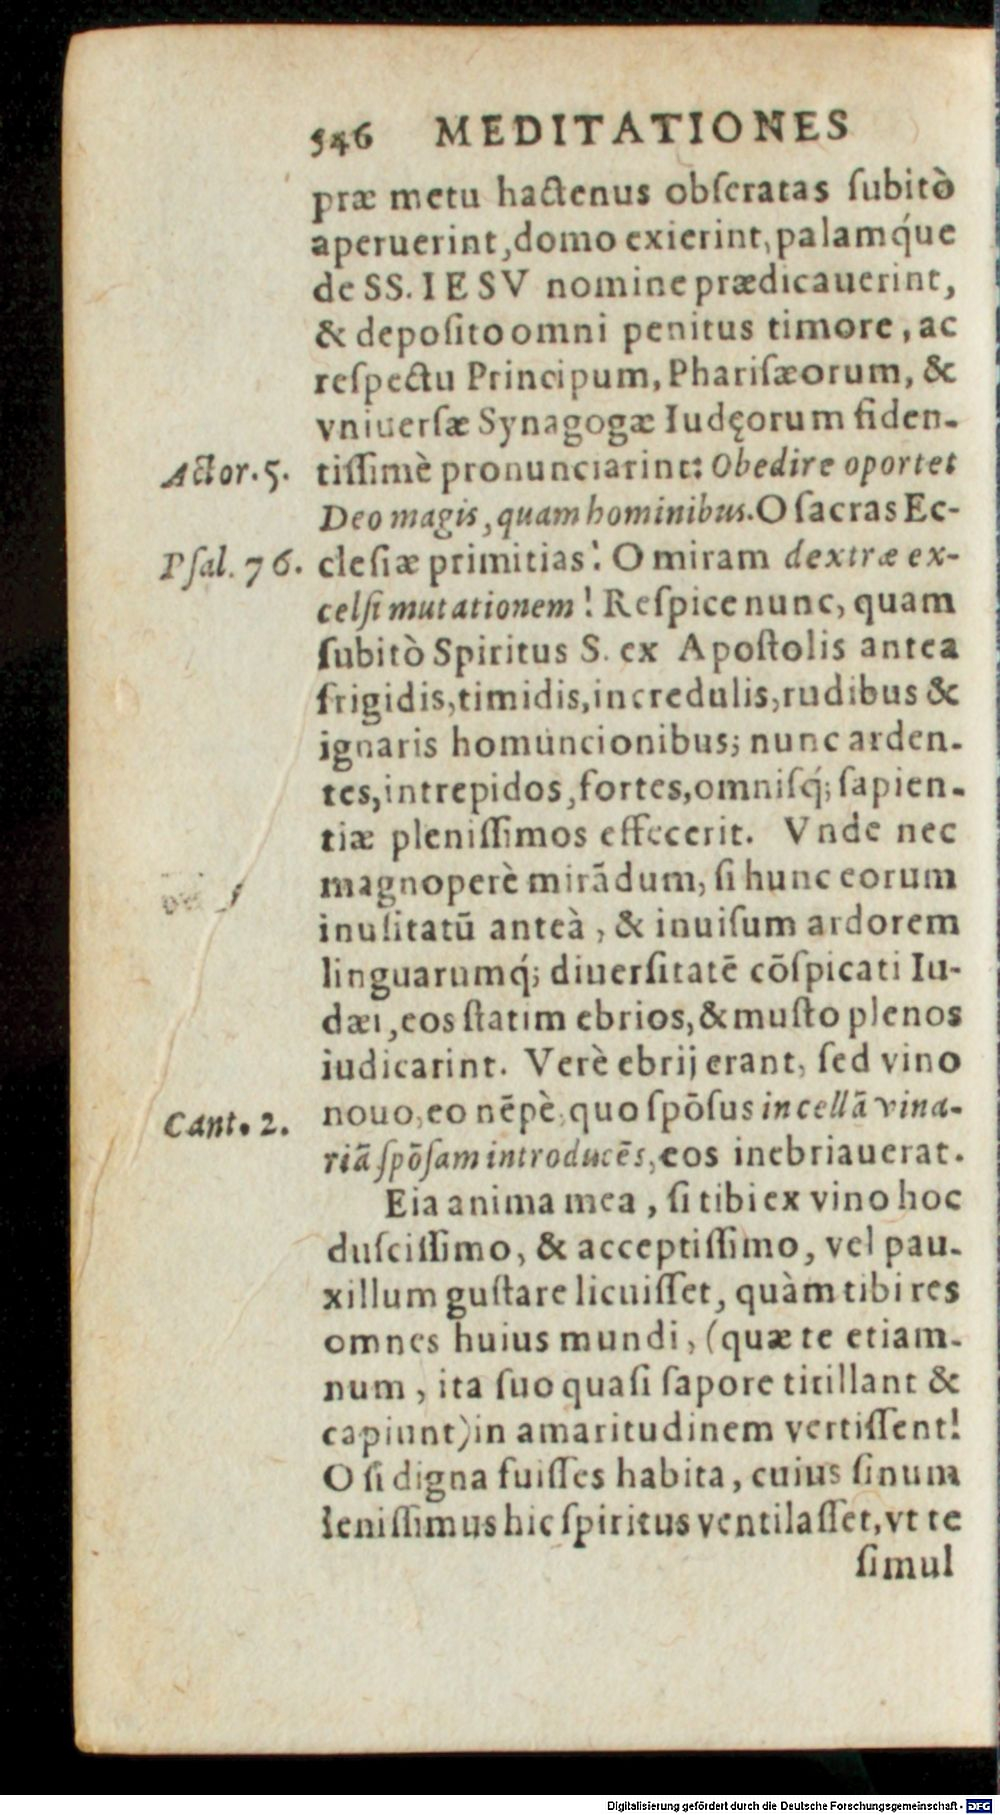 546 MEDITATIONES
præ metu hactenus obſeratas ſubitò
aperuerint, domo exierint, palamq́ue
de SS. IESV nomine prædicauerint,
& depoſito omni penitus timore, ac
reſpectu Principum, Phariſæorum, &
vniuerſæ Synagogæ Iudęorum fiden-
Actor. 5. tiſſimè pronunciarint: Obedire oportet
Deo magis, quam hominibus. O ſacras Ec-
Pſal. 76. cleſiæ primitias! O miram dextræ ex-
celſi mutationem! Reſpice nunc, quam
ſubitò Spiritus S. ex Apoſtolis antea
frigidis, timidis, incredulis, rudibus &
ignaris homuncionibus; nunc arden-
tes, intrepidos, fortes, omniſq́; ſapien-
tiæ pleniſſimos effecerit. Vnde nec
magnoperè mirādum, ſi hunc eorum
inuſitatū anteà, & inuiſum ardorem
linguarumq́; diuerſitatē cōſpicati Iu-
dæi, eos ſtatim ebrios, & muſto plenos
iudicarint. Verè ebrij erant, ſed vino
Cant. 2. nouo, eo nēpè, quo ſpōſus in cellā vina-
riā ſpōſam introducēs, eos inebriauerat.
Eia anima mea, ſi tibi ex vino hoc
dulciſſimo, & acceptiſſimo, vel pau-
xillum guſtare licuiſſet, quàm tibi res
omnes huius mundi, (quæ te etiam-
num, ita ſuo quaſi ſapore titillant &
capiunt) in amaritudinem vertiſſent!
O ſi digna fuiſſes habita, cuius ſinum
leniſſimus hic ſpiritus ventilaſſet, vt te
ſimul
Digitalisierung gefördert durch die Deutsche Forschungsgemeinschaft - DFG